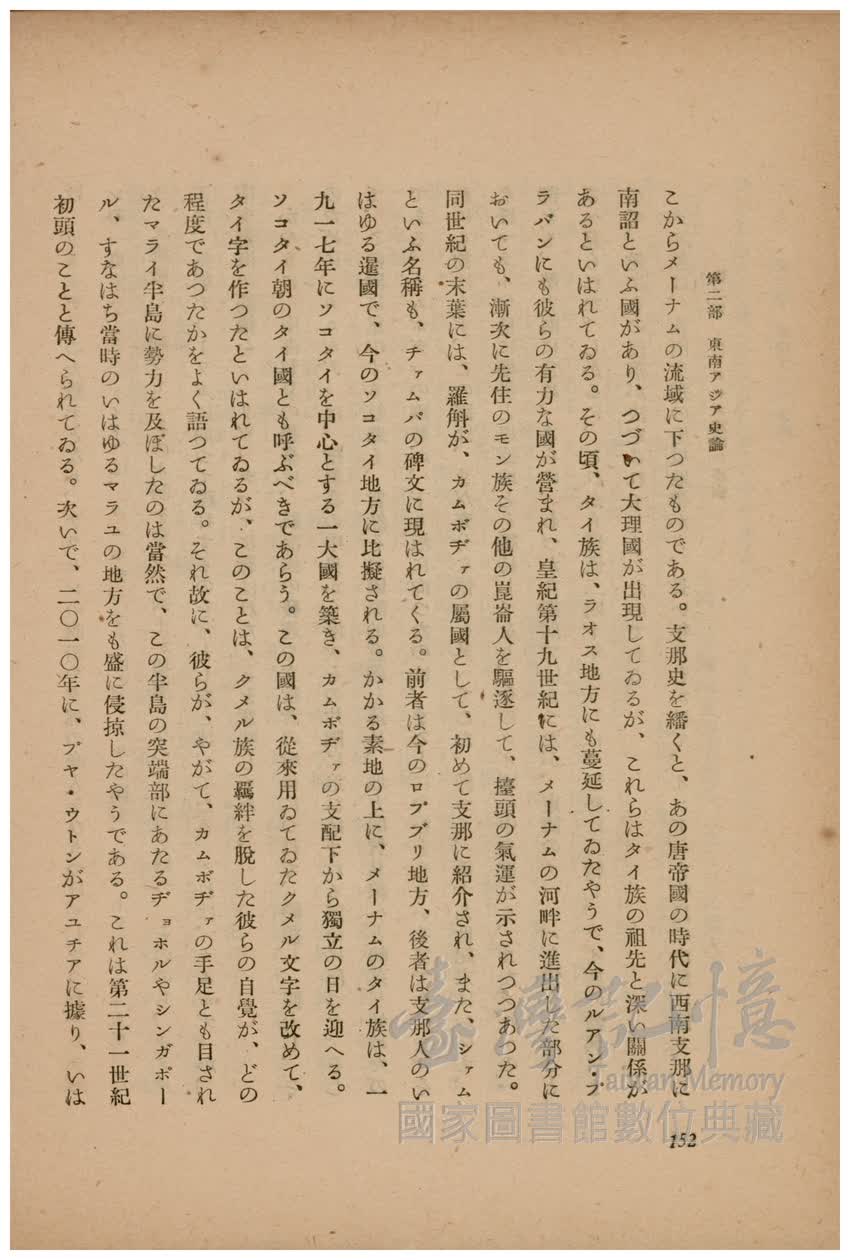 第二部 東南アジア史論
こからメーナムの流域に下つたものである。支那史を繙くと、あの唐帝國の時代に西南支那に
南詔といふ國があり、つづいて大理國が出現してゐるが、これらはタイ族の祖先と深い關係が
あるといはれてゐる。その頃、タイ族は、ラオス地方にも蔓延してゐたやうで、今のルアン・プ
ラバンにも彼らの有力な國が營まれ、皇紀第十九世紀には、メーナムの河畔に進出した部分に
おいても、漸次に先住のモン族その他の崑崙人を驅逐して、擡頭の氣運が示されつつあつた。
同世紀の末葉には、羅斛が、カムボヂァの屬國として、初めて支那に紹介され、また、シァム
といふ名稱も、チァムパの碑文に現はれてくる。前者は今のロプブリ地方、後者は支那人のい
はゆる暹國で、今のソコタイ地方に比擬される。かかる素地の上に、メーナムのタイ族は、一
九一七年にソコタイを中心とする一大國を築き、カムボヂァの支配下から獨立の日を迎へる。
ソコタイ朝のタイ國とも呼ぶべきであらう。この國は、從來用ゐてゐたクメル文字を改めて、
タイ字を作つたといはれてゐるが、このことは、クメル族の羈絆を脫した彼らの自覺が、どの
程度であつたかをよく語つてゐる。それ故に、彼らが、やがて、カムボヂァの手足とも目され
たマライ半島に勢力を及ぼしたのは當然で、この半島の突端部にあたるヂョホルやシンガポー
ル、すなはち當時のいはゆるマラユの地方をも盛に侵掠したやうである。これは第二十一世紀
初頭のことと傳へられてゐる。次いで、二〇一〇年に、プヤ・ウトンがアユチアに據り、いは
152
臺灣記憶
Taiwan Memory
國家圖書館數位典藏